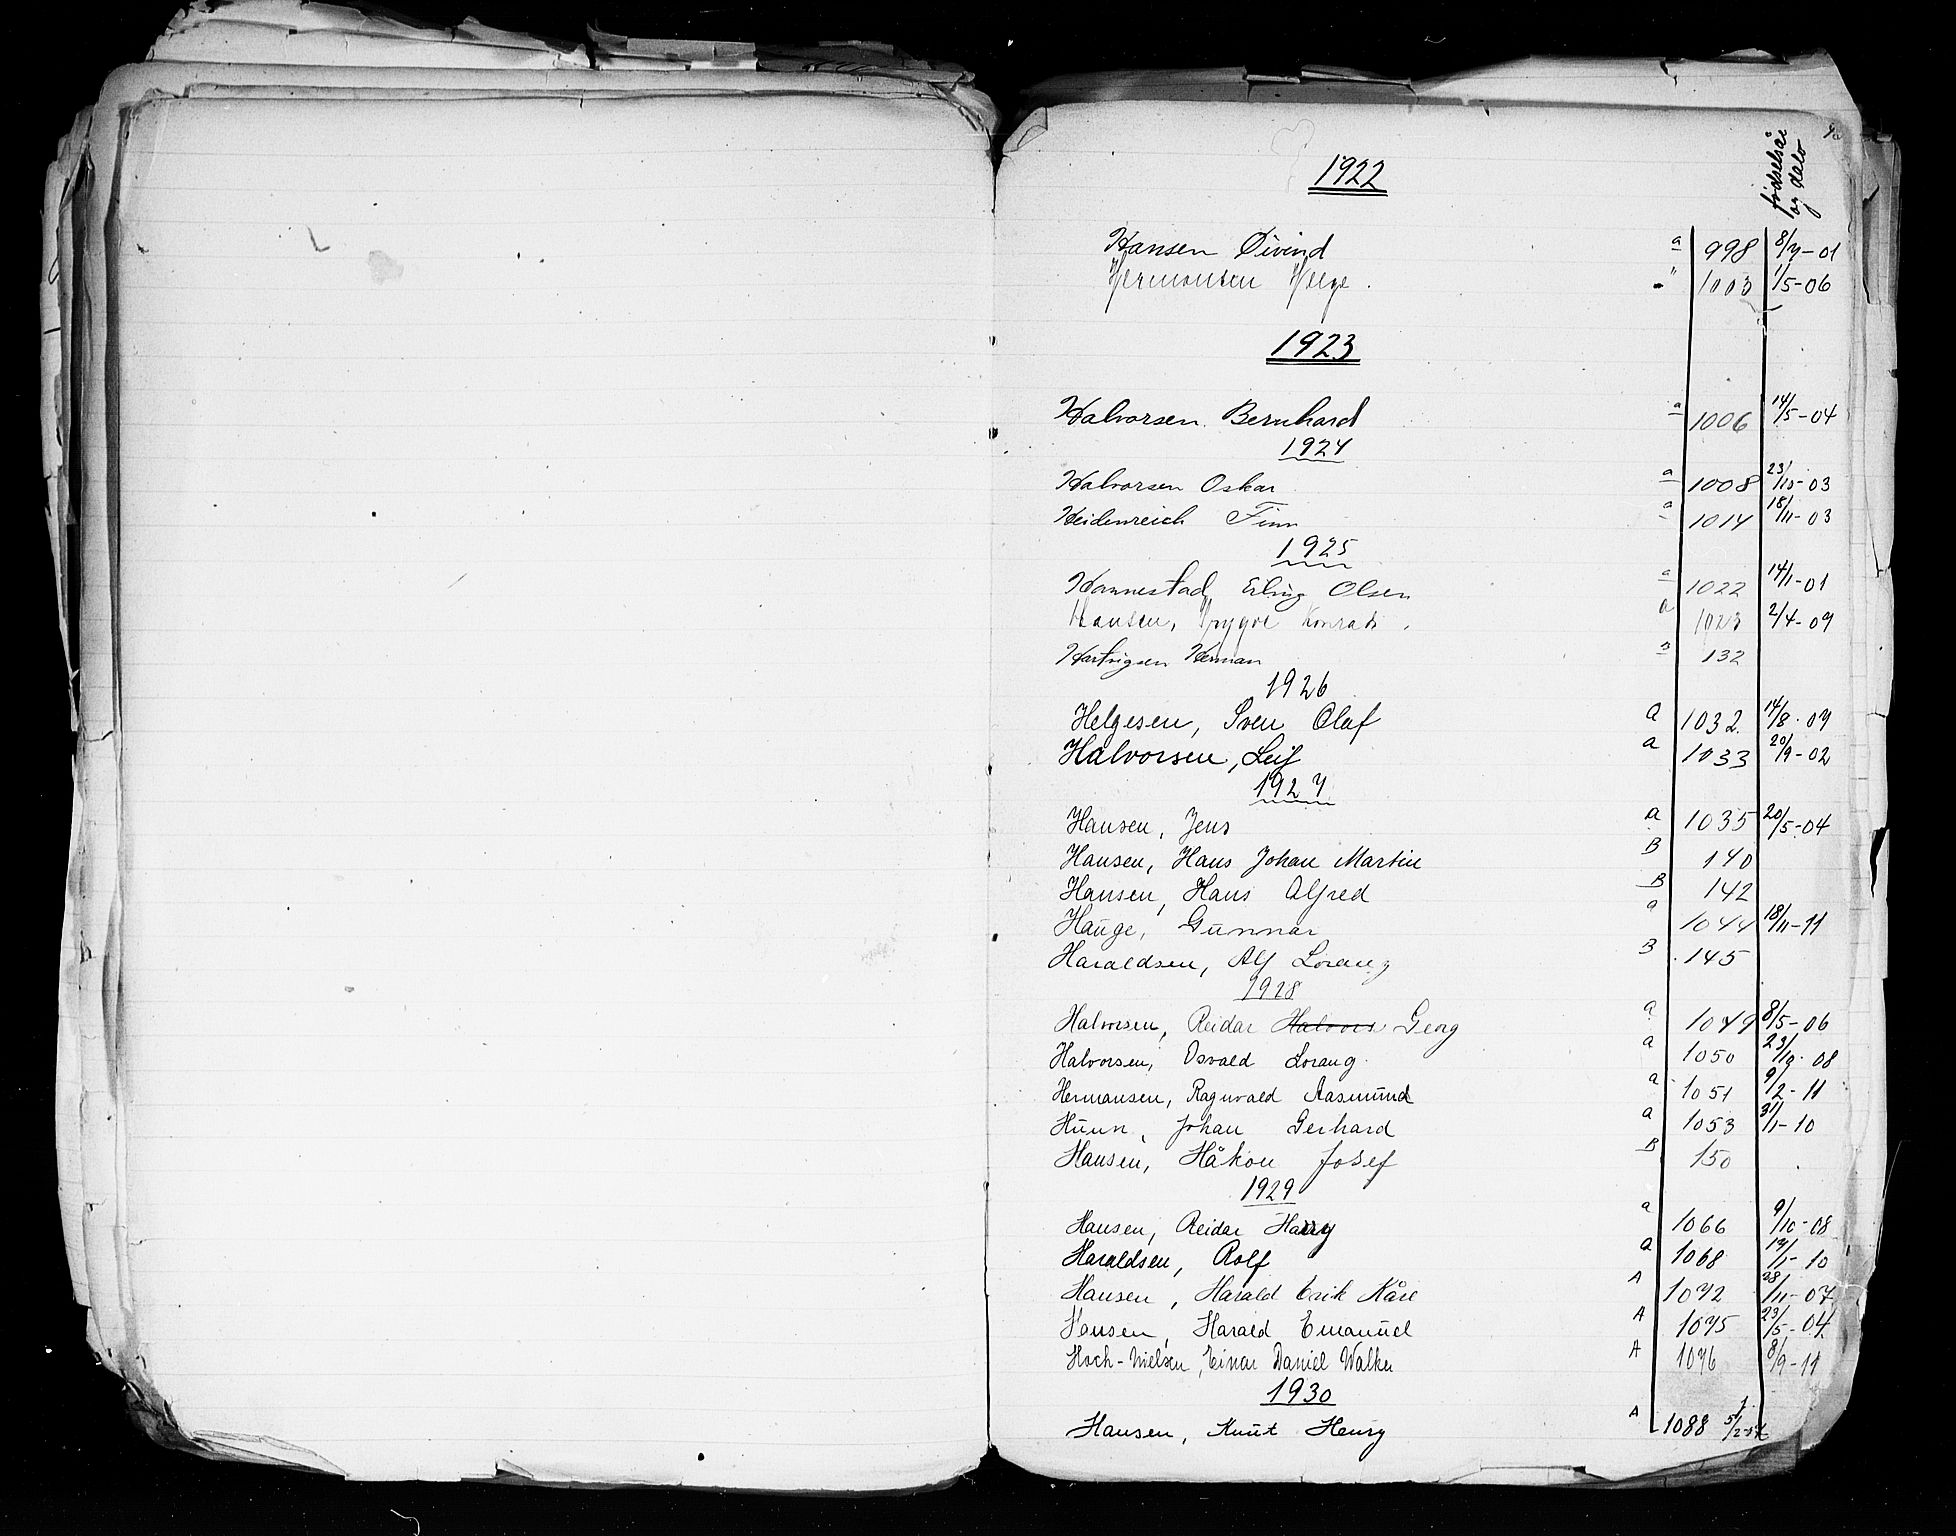 fødselsår
og dato
1922
Hansen Øivind a 998 8/7-01
Hermansen Helge. " 1003 1/5-06
1923
Halvorsen Bernhard a 1006 14/5-04
1924
Halvorsen Oskar a 1008 23/10-03
Heidenreich Finn a 1014 18/11-03
1925
Hannestad, Erling Olsen a 1022 14/1-01
Hansen, Trygve Konrad a 1023 2/4-09
Hartvigsen Herman B 132
1926
Helgesen, Sven Olaf a 1032 14/8-07
Halvorsen, Leif a 1033 20/9-02
1927
Hansen, Jens a 1035 20/5-04
Hansen, Hans Johan Martin B 140
Hansen, Hans Alfred B 142
Hauge, Gunnar a 1044 18/11-11
Haraldsen, Alf Lorang B 145
1928
Halvorsen, Reidar Halvors Georg a 1049 8/5-06
Halvorsen, Osvald Lorang a 1050 23/10-08
Hermansen, Ragnvald Aasmund a 1051 9/2-11
Huun, Johan Gerhard a 1053 31/1-10
Hansen, Håkon Josef B 150
1929
Hansen, Reidar Harry a 1066 9/10-08
Haraldsen, Rolf a 1068 12/1-10
Hansen, Harald Erik Kåre A 1072 28/11-07
Hansen, Harald Emanuel A 1075 23/5-04
Hoch-Nielsen, Einar Daniel Walker A 1076 8/9-11
1930
Hansen, Knut Henry A 1088